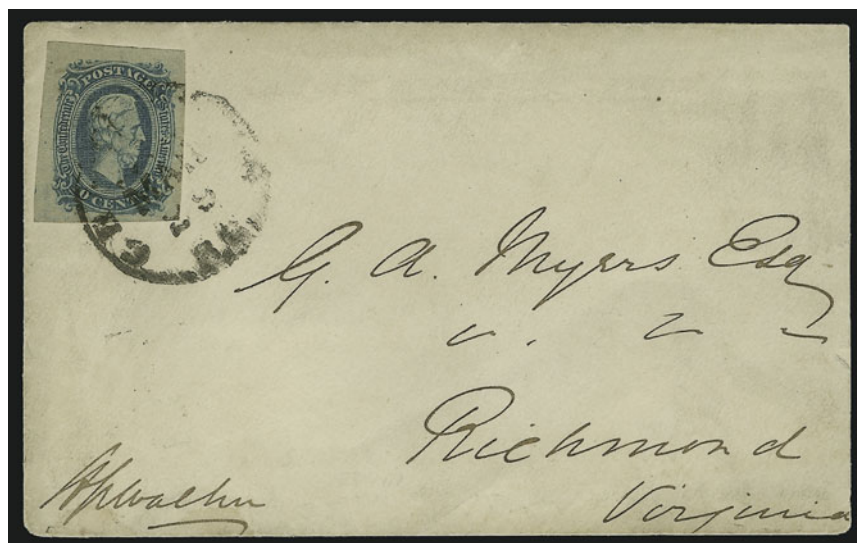 POSTAGE
The Confederate States of America
CENTS
G. A. Myers Esq
Richmond
Virginia